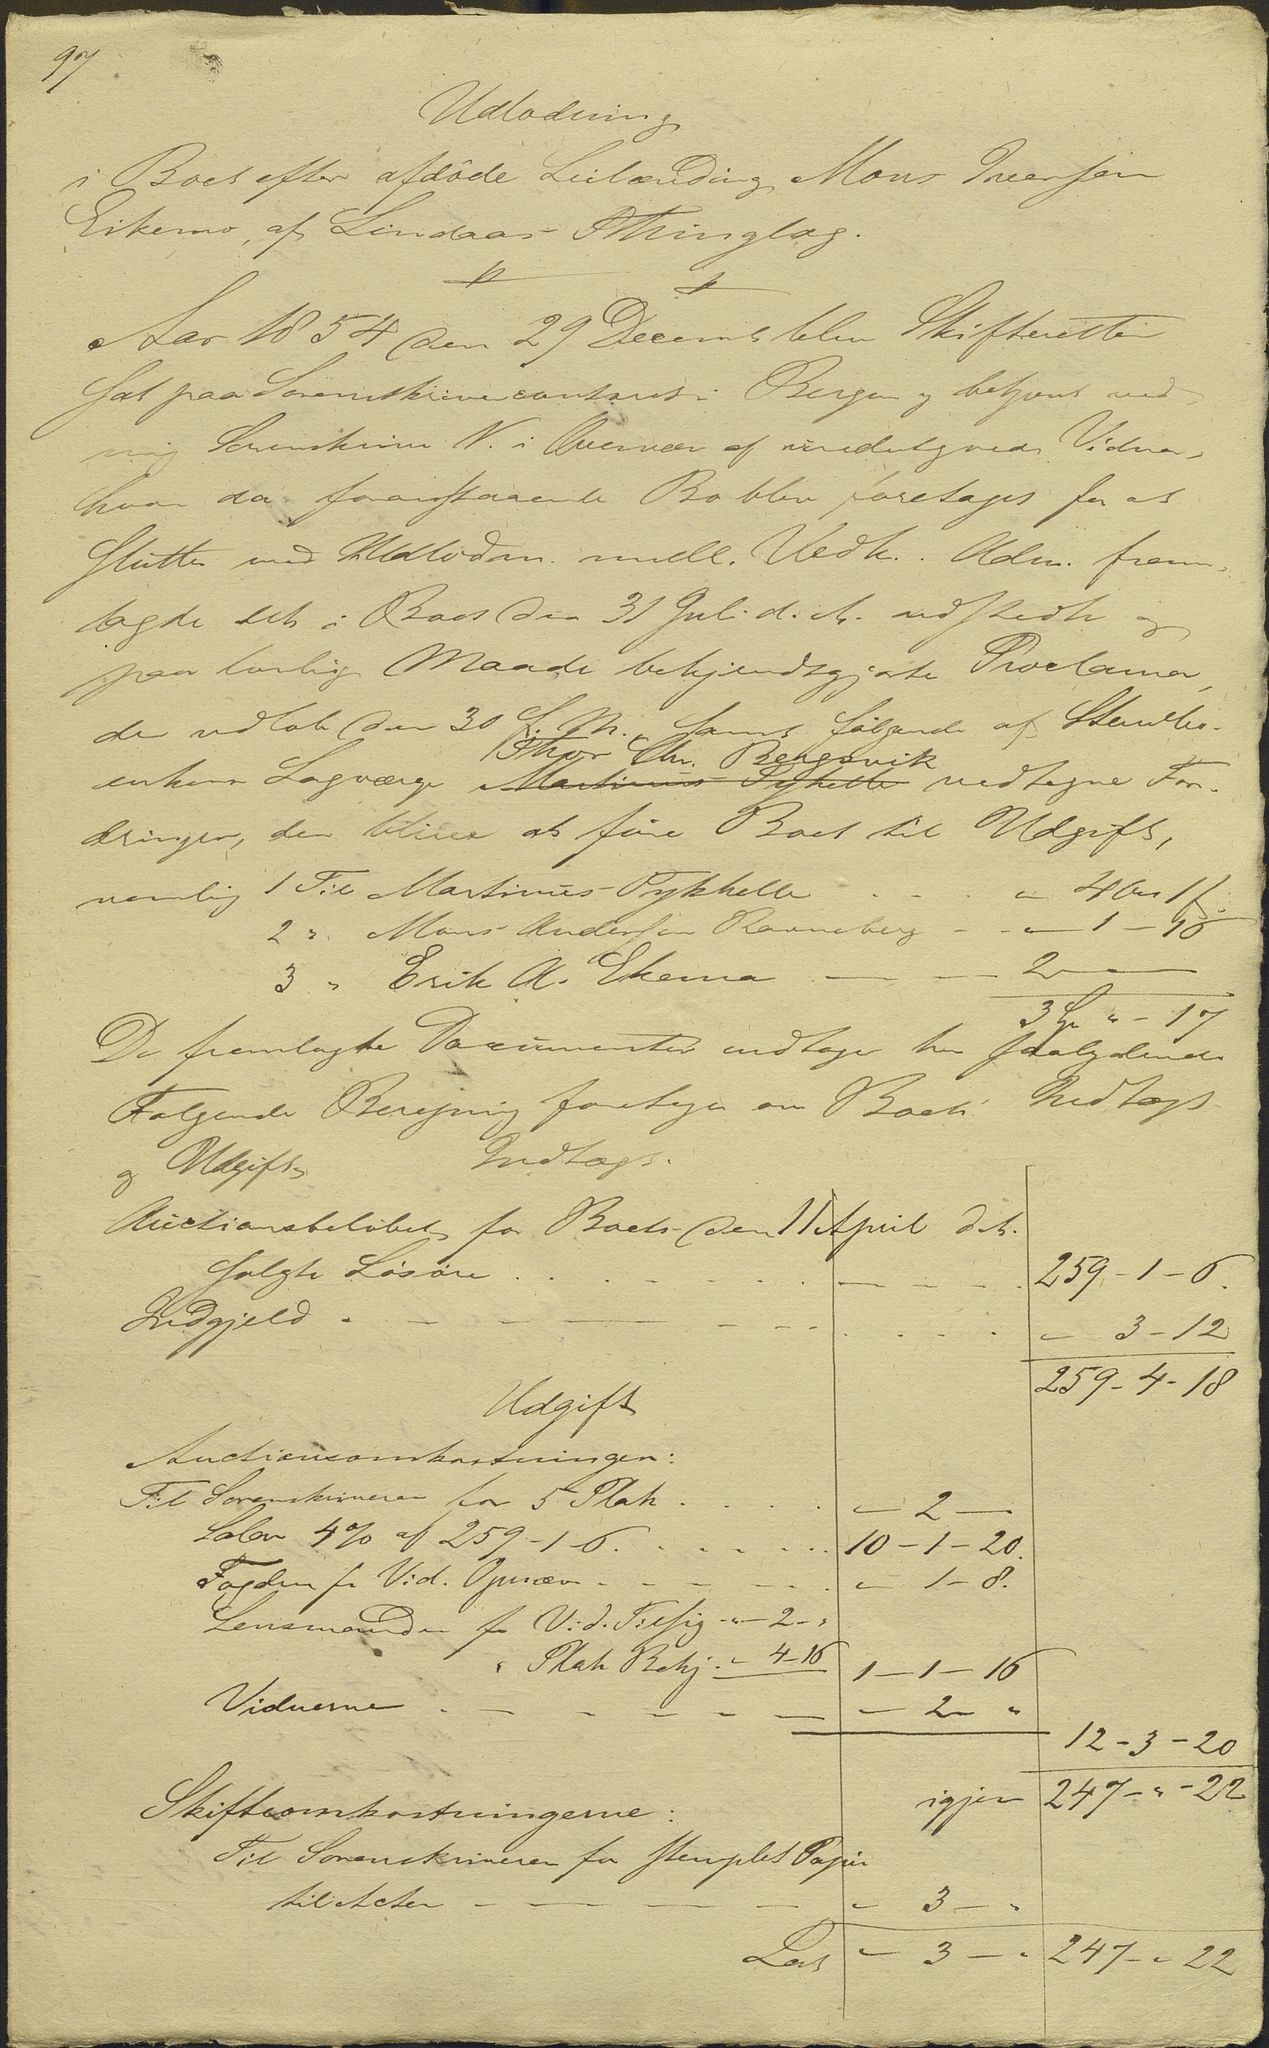 97
Udlodning
i Boet efter afdöde Leilænding Mons Iversen
Eikemo, af Lindaas Thinglag.
Aar 1854 den 29 Decemb blev Skifteretten
sat paa Sorenskrivercontoret i Bergen og betjent ved
mig Sorenskriver N. i Overvær af undertegnede Vidner,
hvor da foranstaaende Bo blev foretaget for at
slutte med Udlodn. mell. Vedk. Adm. frem-
lagde det i Boet den 31 Juli d. A. udstedte og
paa lovlig Maade bekjendtgjorte Proclama,
der udlöb den 30 f. M., samt følgende af Stervbo-
Thor Chr. Bergsvik
enkens Lagværge Martinus Tykhelle vedtagne For-
dringer, der blive at före Boet til Udgift,
nemlig 1 Til Martinus Tykhelle . . . " 4 Ort 1 s.
2 " Mons Andersen Ravneberg - - " 1 - 16
3 " Erik A. Ekemo — — — 2 —
3 Sp " - 17
De fremlagte Documenter indtages her saalydende
Følgende Beregning foretages over Boets Indtægt
og Udgift. Indtægt.
Auctionsbelöbet for Boets den 11 April d. A.
solgte Løsöre . . . 259 - 1 - 6.
Indgjeld - - - " 3 - 12
259 - 4 - 18
Udgift
Auctionsomkostninger:
Til Sorenskriveren for 5 Plak . . . . . — 2 —
Salær 4% af 259 - 1 - 6 . . . . . 10 - 1 - 20.
Fogden for Vid. Opnævn . - - - - " 1 - 8.
Lensmanden for Vid. Tilsig. " - 2 - "
" Plak Bekj. " 4 - 16 1 - 1 - 16
Vidnerne . - - - - - " 2 - "
12 - 3 - 20
igjen 247 - " - 22
Skifteomkostningerne:
Til Sorenskriveren for stemplet Papir
til Acten - - - - - " 3 - "
Lat. " 3 - " 247 - " 22